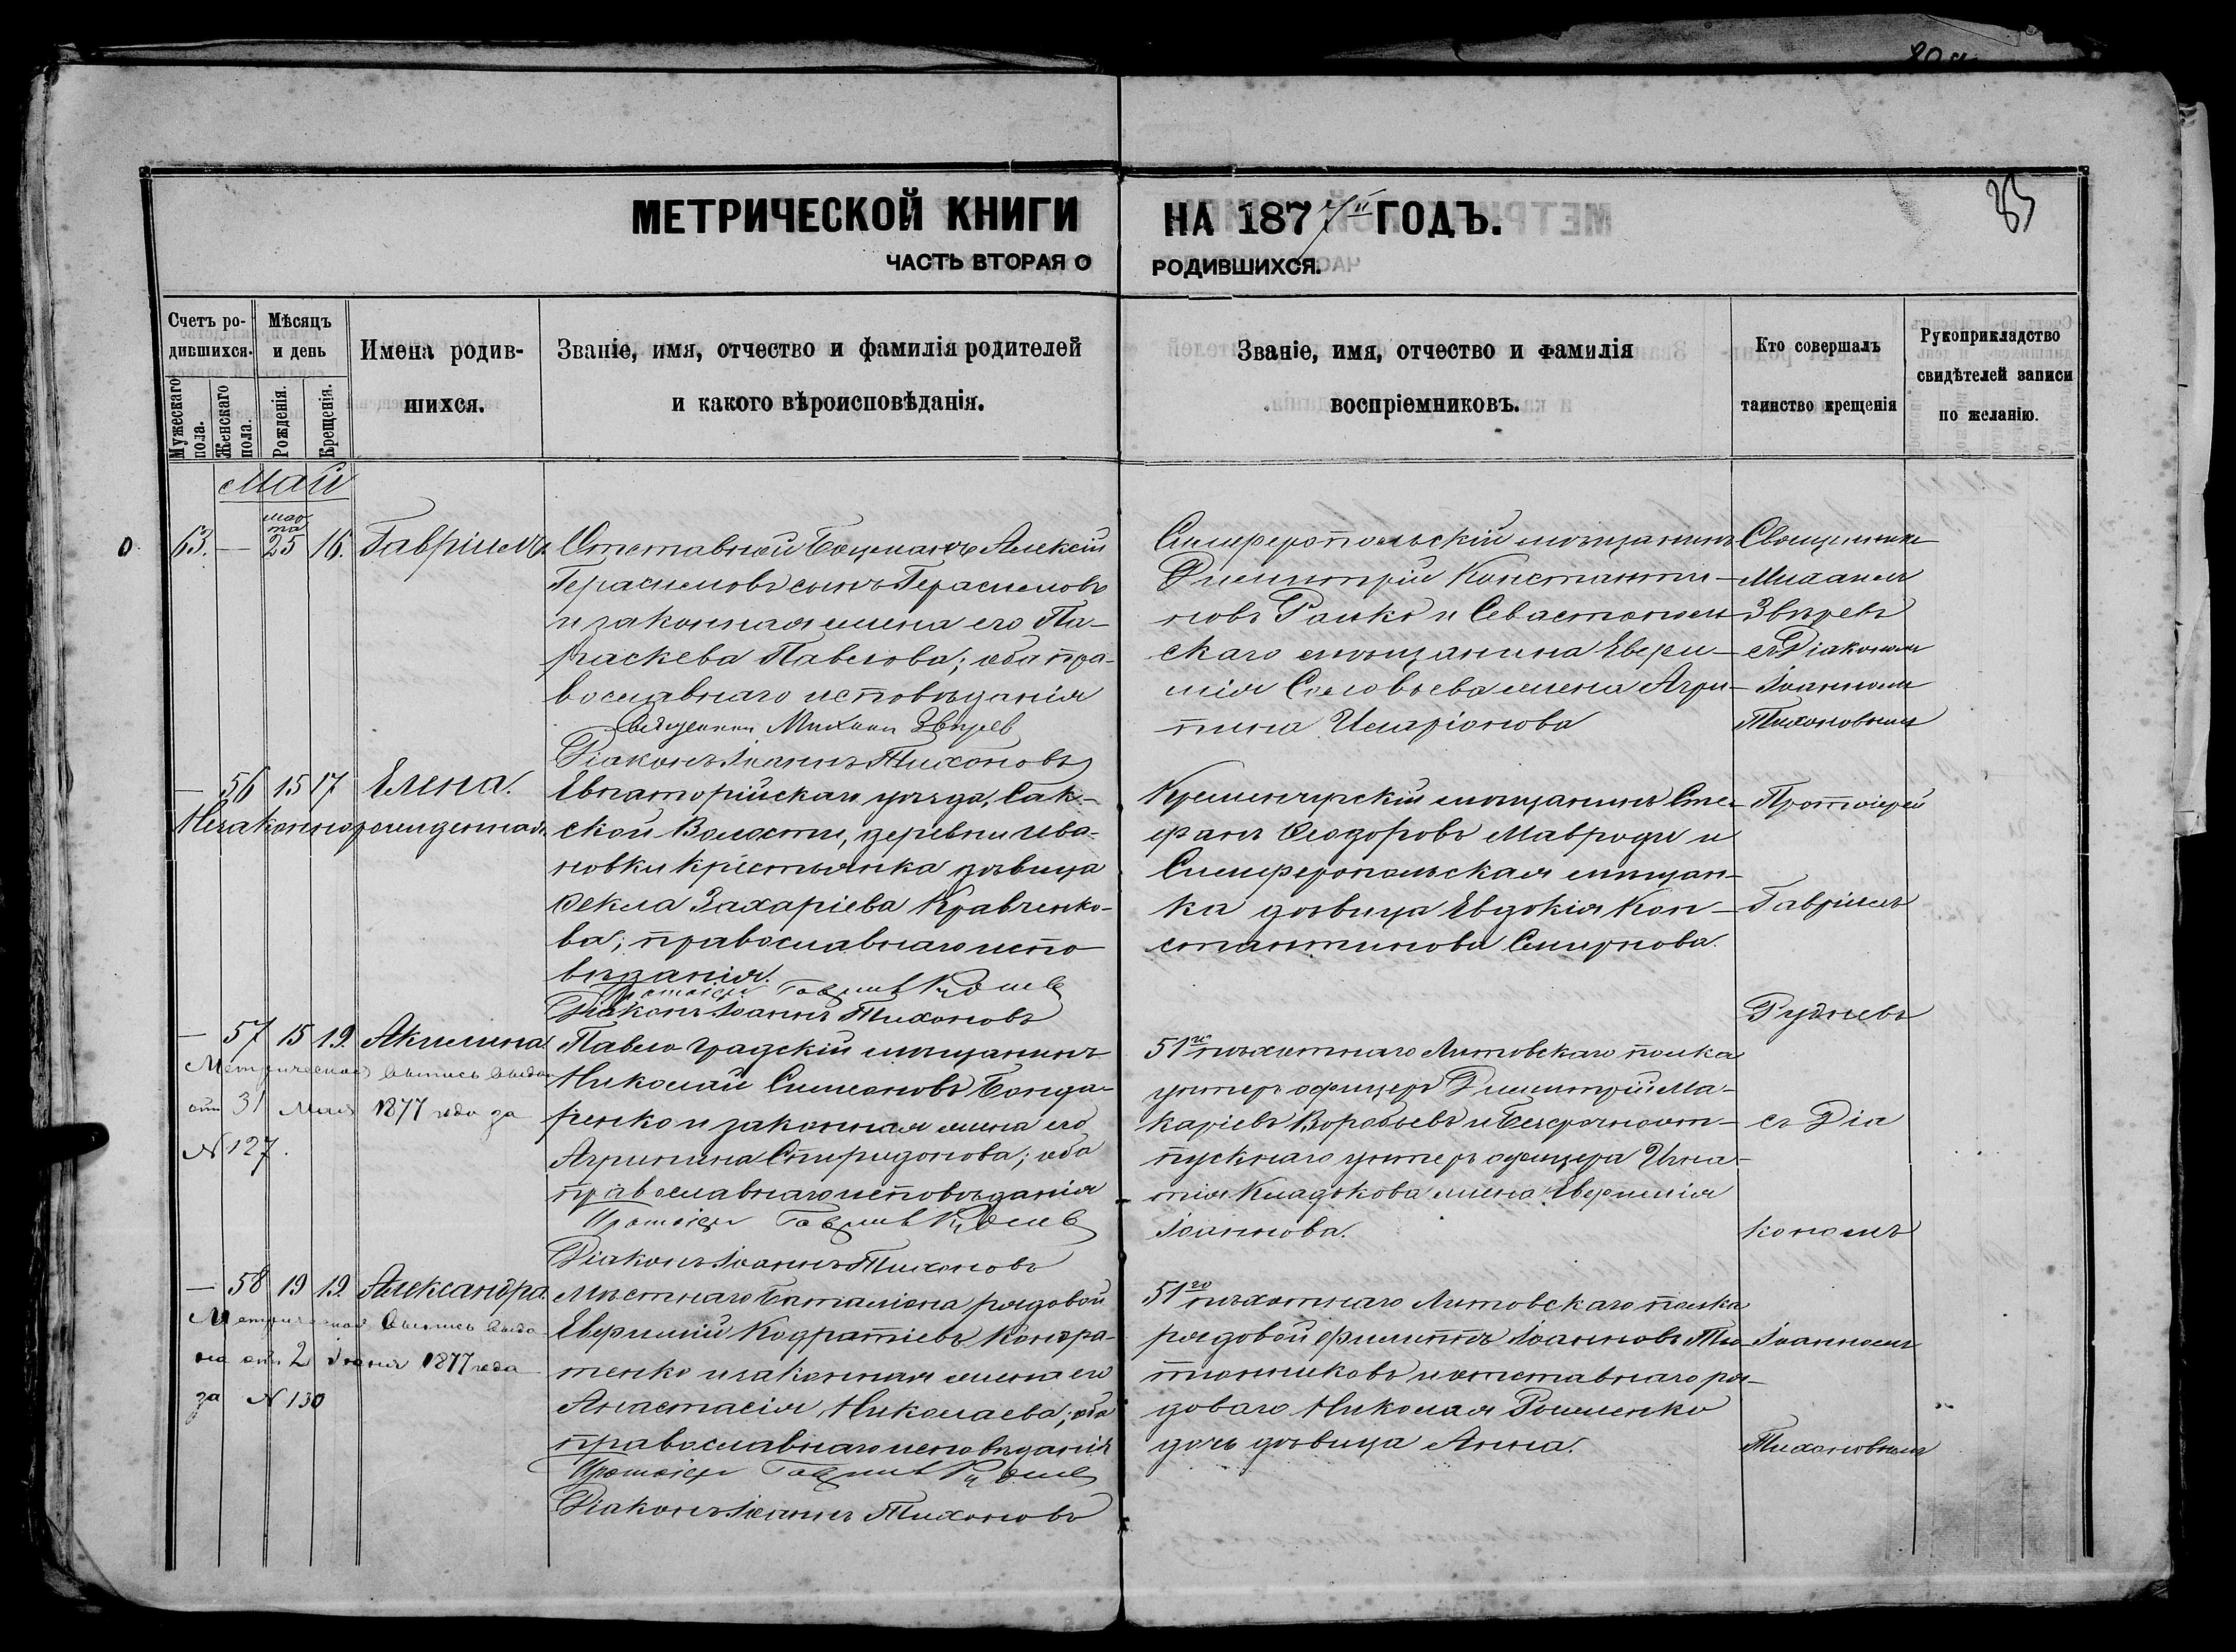 МЕТРИЧЕСКОЙ КНИГИ НА 1877й ГОДЪ.
ЧАСТЬ ВТОРАЯ О РОДИВШИХСЯ.
Счетъ ро-
дившихся.
Мужескаго пола.
Женскаго пола.
Мѣсяцъ
и день
Рожденія.
Крещенія.
Имена родив-
шихся.
Званіе, имя, отчество и фамилія родителей
и какого вѣроисповѣданія.
Званіе, имя, отчество и фамилія
воспріемниковъ.
Кто совершалъ
таинство крещенія
Рукоприкладство
свидѣтелей записи
по желанію.
Май
63. — марта 25 16. Гавріилъ.
Отставной Боцманъ Алексѣй
Герасимовъ сынъ Герасимовъ
и законная жена его Па-
раскева Павлова; оба пра-
вославнаго исповѣданія
Священник Михаил Звѣрев
Діаконъ Іоаннъ Тихоновъ
Симферопольскій мѣщанинъ
Димитрій Константи-
новъ Ранко и Севастополь-
скаго мѣщанина Евфи-
мія Соловьева жена Агри-
пина Иларіонова
Священникъ
Михаилъ
Звѣревъ
съ Діакономъ
Іоанномъ
Тихоновымъ
— 56 15 17 Елена.
Незаконнорожденная
Евпаторійскаго уѣзда, Сак-
ской Волости, деревни Ива-
новки крестьянка дѣвица
Ѳекла Захаріева Кравченко-
ва; православнаго испо-
вѣданія.
Протоіерей Гавріилъ Руднев
Діаконъ Іоаннъ Тихоновъ
Кременчугскій мѣщанинъ Сте-
фанъ Ѳеодоровъ Мавроди и
Симферопольская мѣщан-
ка дѣвица Евдокія Кон-
стантинова Смирнова.
Протоіерей
Гавріилъ
Рудневъ
— 57 15 19. Акилина
Метрическая выпись выдан
отъ 31 мая 1877 года за
N 127.
Павлоградскій мѣщанинъ
Николай Симеоновъ Бонда-
ренко и законная жена его
Агрипина Спиридонова; оба
православнаго исповѣданія
Протоіерей Гавріилъ Руднев
Діаконъ Іоаннъ Тихоновъ
51го пѣхотнаго Литовскаго полка
унтеръ офицеръ Димитрій Ма-
каріевъ Воробьевъ и Безсрочноот-
пускнаго унтеръ офицера Игна-
тія Кладькова жена Евфимія
Іоаннова.
съ Діа
кономъ
— 58 19 19. Александра.
Метрическая выпись выда-
на отъ 2 Іюня 1877 года
за N 130
Мѣстнаго Баталіона рядовой
Евфимій Кодратіевъ Кондра-
тенко и законная жена его
Анастасія Николаева; оба
православнаго исповѣданія
Протоіерей Гавріилъ Руднев
Діаконъ Іоаннъ Тихоновъ
51го пѣхотнаго Литовскаго полка
рядовой Филиппъ Іоанновъ
и отставнаго ря-
доваго Николая
дочь дѣвица Анна.
Іоанномъ
Тихоновымъ